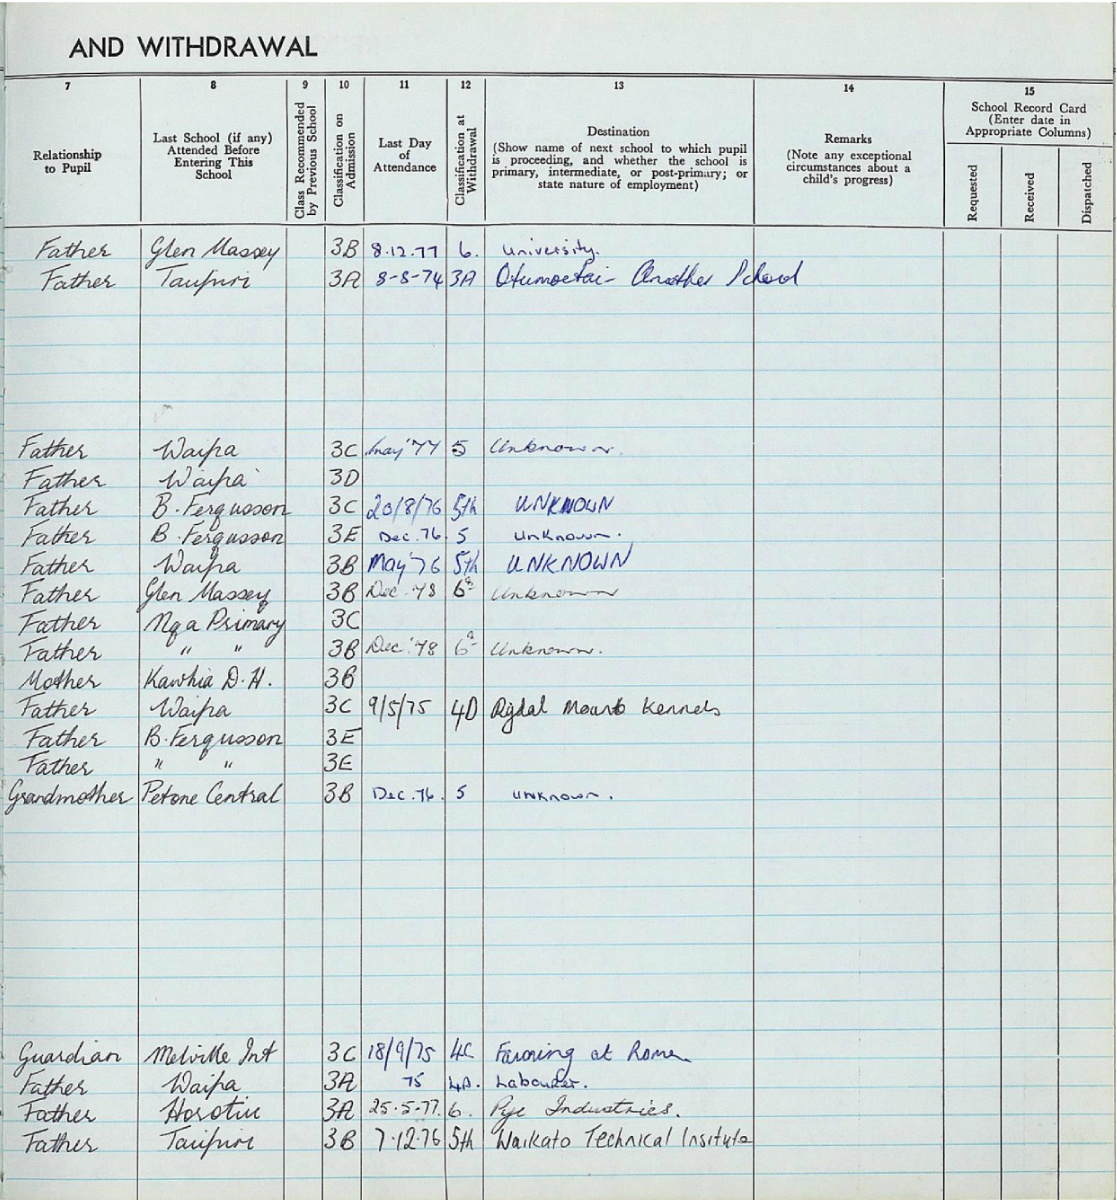 AND WITHDRAWAL
7 8 9 10 11 12 13 14 15
Relationship to Pupil
Last School (if any) Attended Before Entering This School
Class Recommended by Previous School
Classification on Admission
Last Day of Attendance
Classification at Withdrawal
Destination
(Show name of next school to which pupil is proceeding, and whether the school is primary, intermediate, or post-primary; or state nature of employment)
Remarks
(Note any exceptional circumstances about a child's progress)
School Record Card
(Enter date in Appropriate Columns)
Requested
Received
Dispatched
Father Glen Massey 3B 8.12.77 6. University.
Father Taupiri 3A 8-8-74 3A Otumoetai - Another School
Father Waipa 3C May '77 5 Unknown.
Father Waipa 3D
Father B. Fergusson 3C 20/8/76 5th UNKNOWN
Father B. Fergusson 3E Dec. 76. 5 Unknown.
Father Waipa 3B May '76 5th UNKNOWN
Father Glen Massey 3B Dec. '78 6 Unknown
Father Nga Primary 3C
Father " " 3B Dec. '78 6 Unknown.
Mother Kawhia D.H. 3B
Father Waipa 3C 9/5/75 4D Mount Kennels
Father B. Fergusson 3E
Father " " 3E
Grandmother Petone Central 3B Dec. 76. 5 Unknown.
Guardian Melville Int 3C 18/9/75 4C Farming at
Father Waipa 3A 75 4A. Labourer.
Father Horotiu 3A 25.5.77. 6. Pye Industries.
Father Taupiri 3B 7.12.76 5th Waikato Technical Insitute